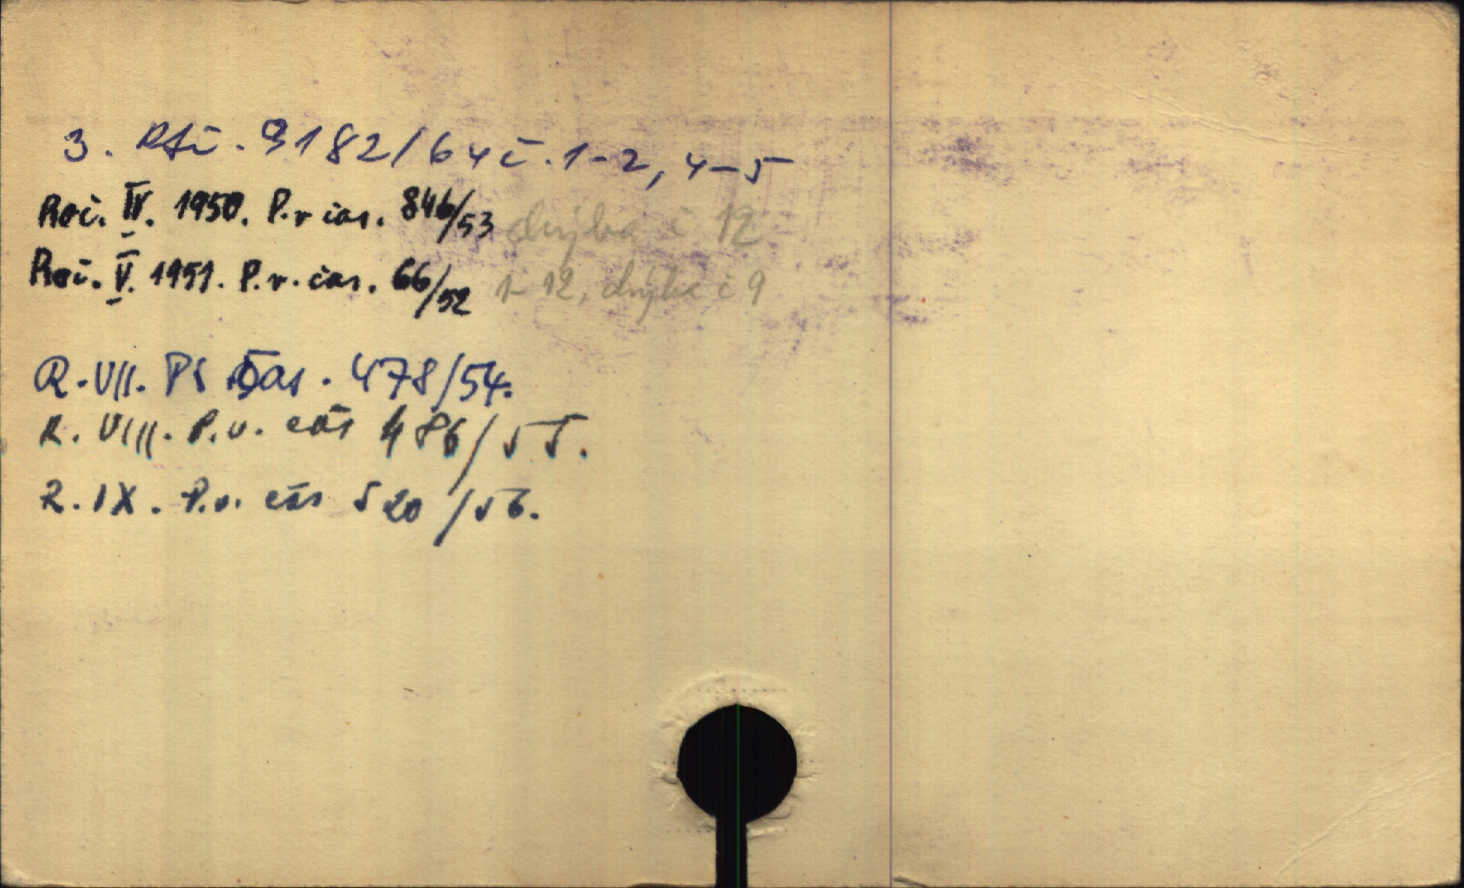 3. Pfč. 9182/64 č. 1-2, 4-5
Roč. IV. 1950. P.v čas. 846/53 chýba č 12
Roč. V. 1951. P.v. čas. 66/52 1-12, chýba č 9
R. VII. PŠ Čas. 478/54.
R. VIII. P.v. čas 486/55.
R. IX. P.v. čas 520/56.